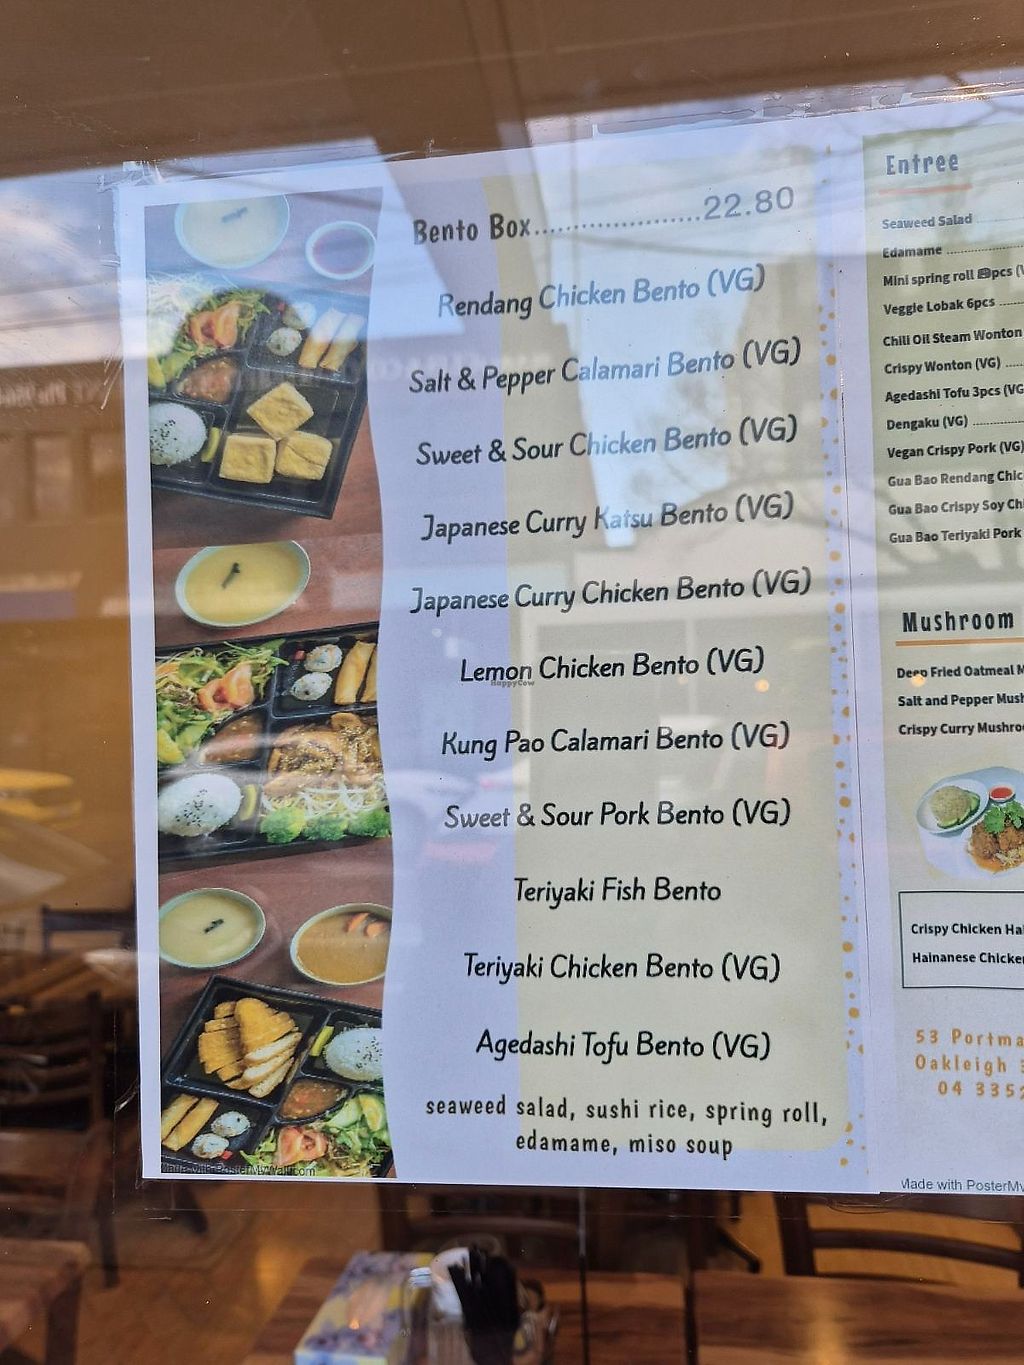 Bento Box.....................22.80
Rendang Chicken Bento (VG)
Salt & Pepper Calamari Bento (VG)
Sweet & Sour Chicken Bento (VG)
Japanese Curry Katsu Bento (VG)
Japanese Curry Chicken Bento (VG)
Lemon Chicken Bento (VG)
HappyCow
Kung Pao Calamari Bento (VG)
Sweet & Sour Pork Bento (VG)
Teriyaki Fish Bento
Teriyaki Chicken Bento (VG)
Agedashi Tofu Bento (VG)
seaweed salad, sushi rice, spring roll,
edamame, miso soup
Made with PosterMyWall.com
Entree
Seaweed Salad
Edamame
Mini spring roll pcs
Veggie Lobak 6pcs
Chili Oil Steam Wonton
Crispy Wonton (VG)
Agedashi Tofu 3pcs (VG
Dengaku (VG)
Vegan Crispy Pork (VG)
Gua Bao Rendang Chic
Gua Bao Crispy Soy Ch
Gua Bao Teriyaki Pork
Mushroom
Deep Fried Oatmeal M
Salt and Pepper Mush
Crispy Curry Mushroo
Crispy Chicken Ha
Hainanese Chicken
53 Portma
Oakleigh
04 3352
Made with PosterMy